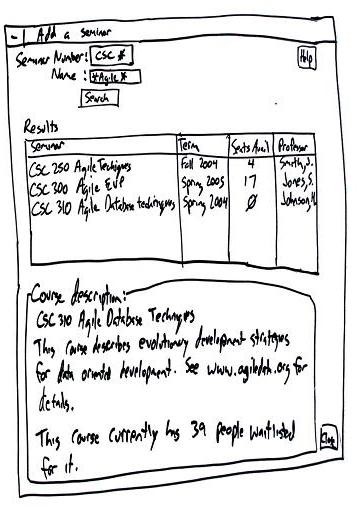 Add a seminar
Seminar Number: CSC *
Help
Name: *Agile*
Search
Results
Seminar Term Seats Avail Professor
CSC 250 Agile Techniques Fall 2004 4 Smith, J.
CSC 300 Agile EUP Spring 2005 17 Jones, S.
CSC 310 Agile Database techniques Spring 2004 Ø Johnson,
Course description:
CSC 310 Agile Database Techniques
This course describes evolutionary development strategies
for data oriented development. See www.agiledata.org for
details.
This course currently has 39 people waitlisted
for it.
Close